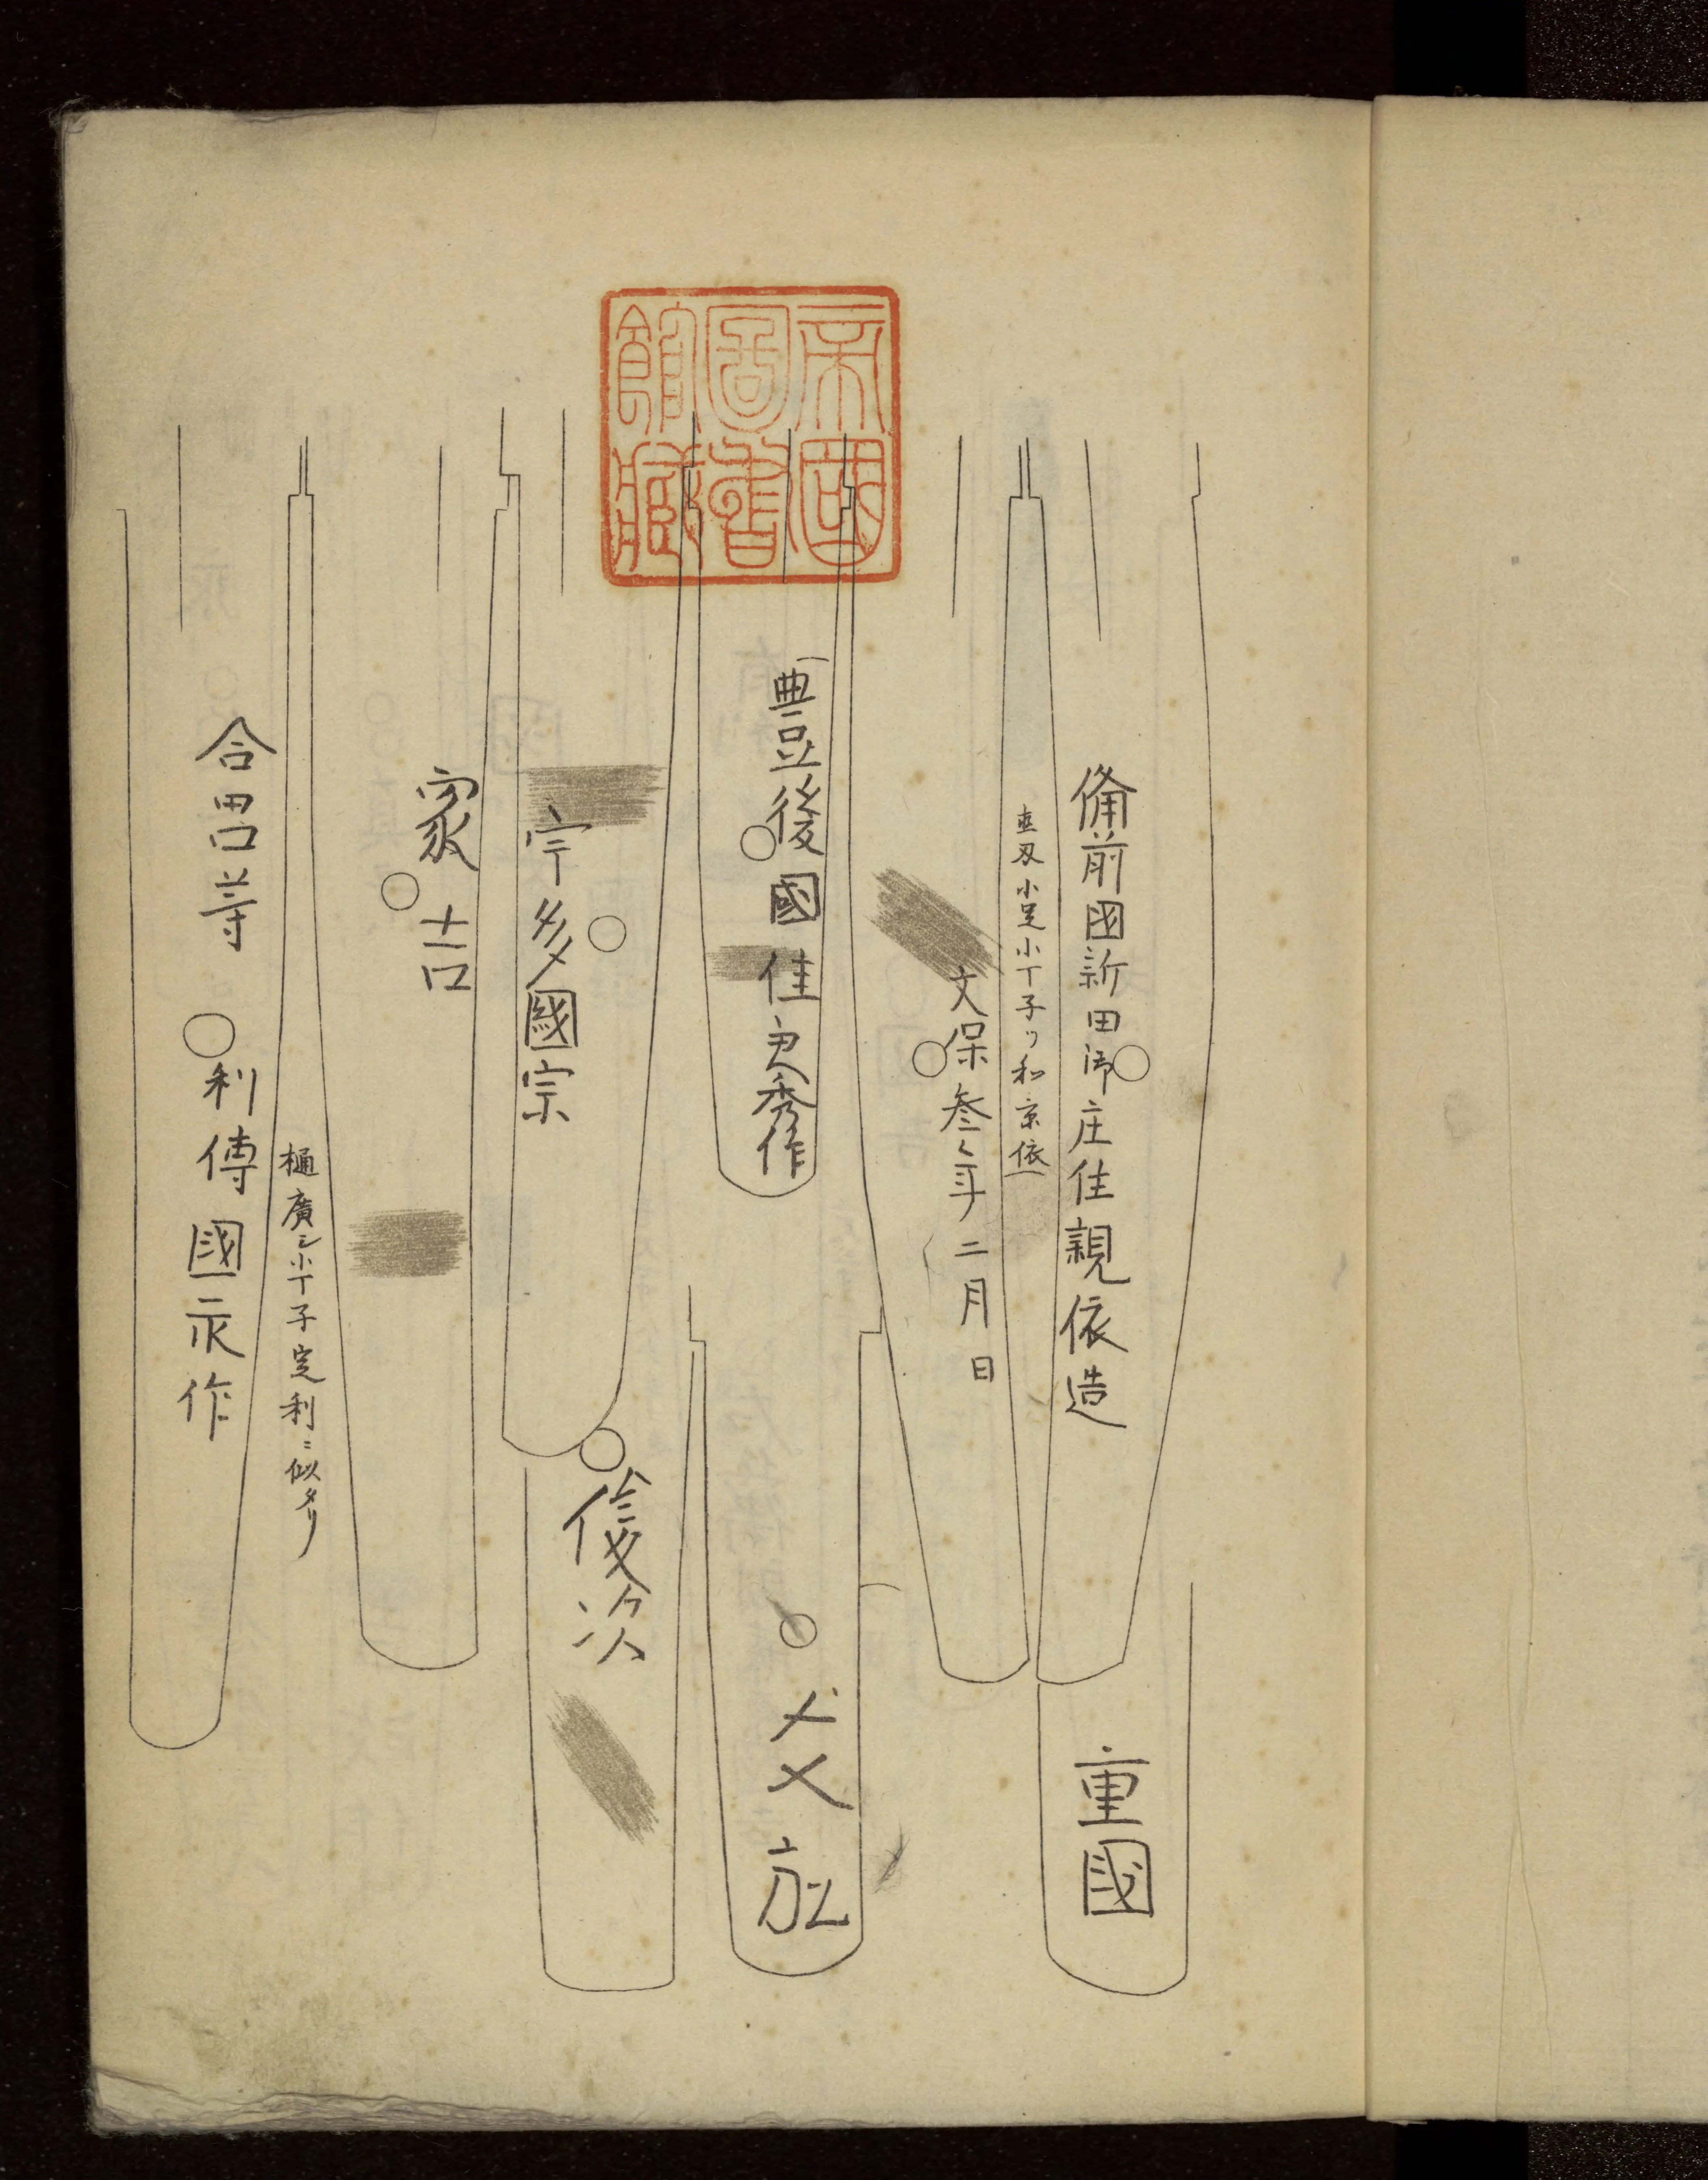 備前國新田㴑庄住親依造
重國
直刃小足小丁子ツ和京依
文保叁年二月日
豊後國住定秀作
宇多國宗
俊次
家吉
樋廣シ小丁子定利ニ似タリ
合呂等利傳國永作
帝國
圖書
館藏